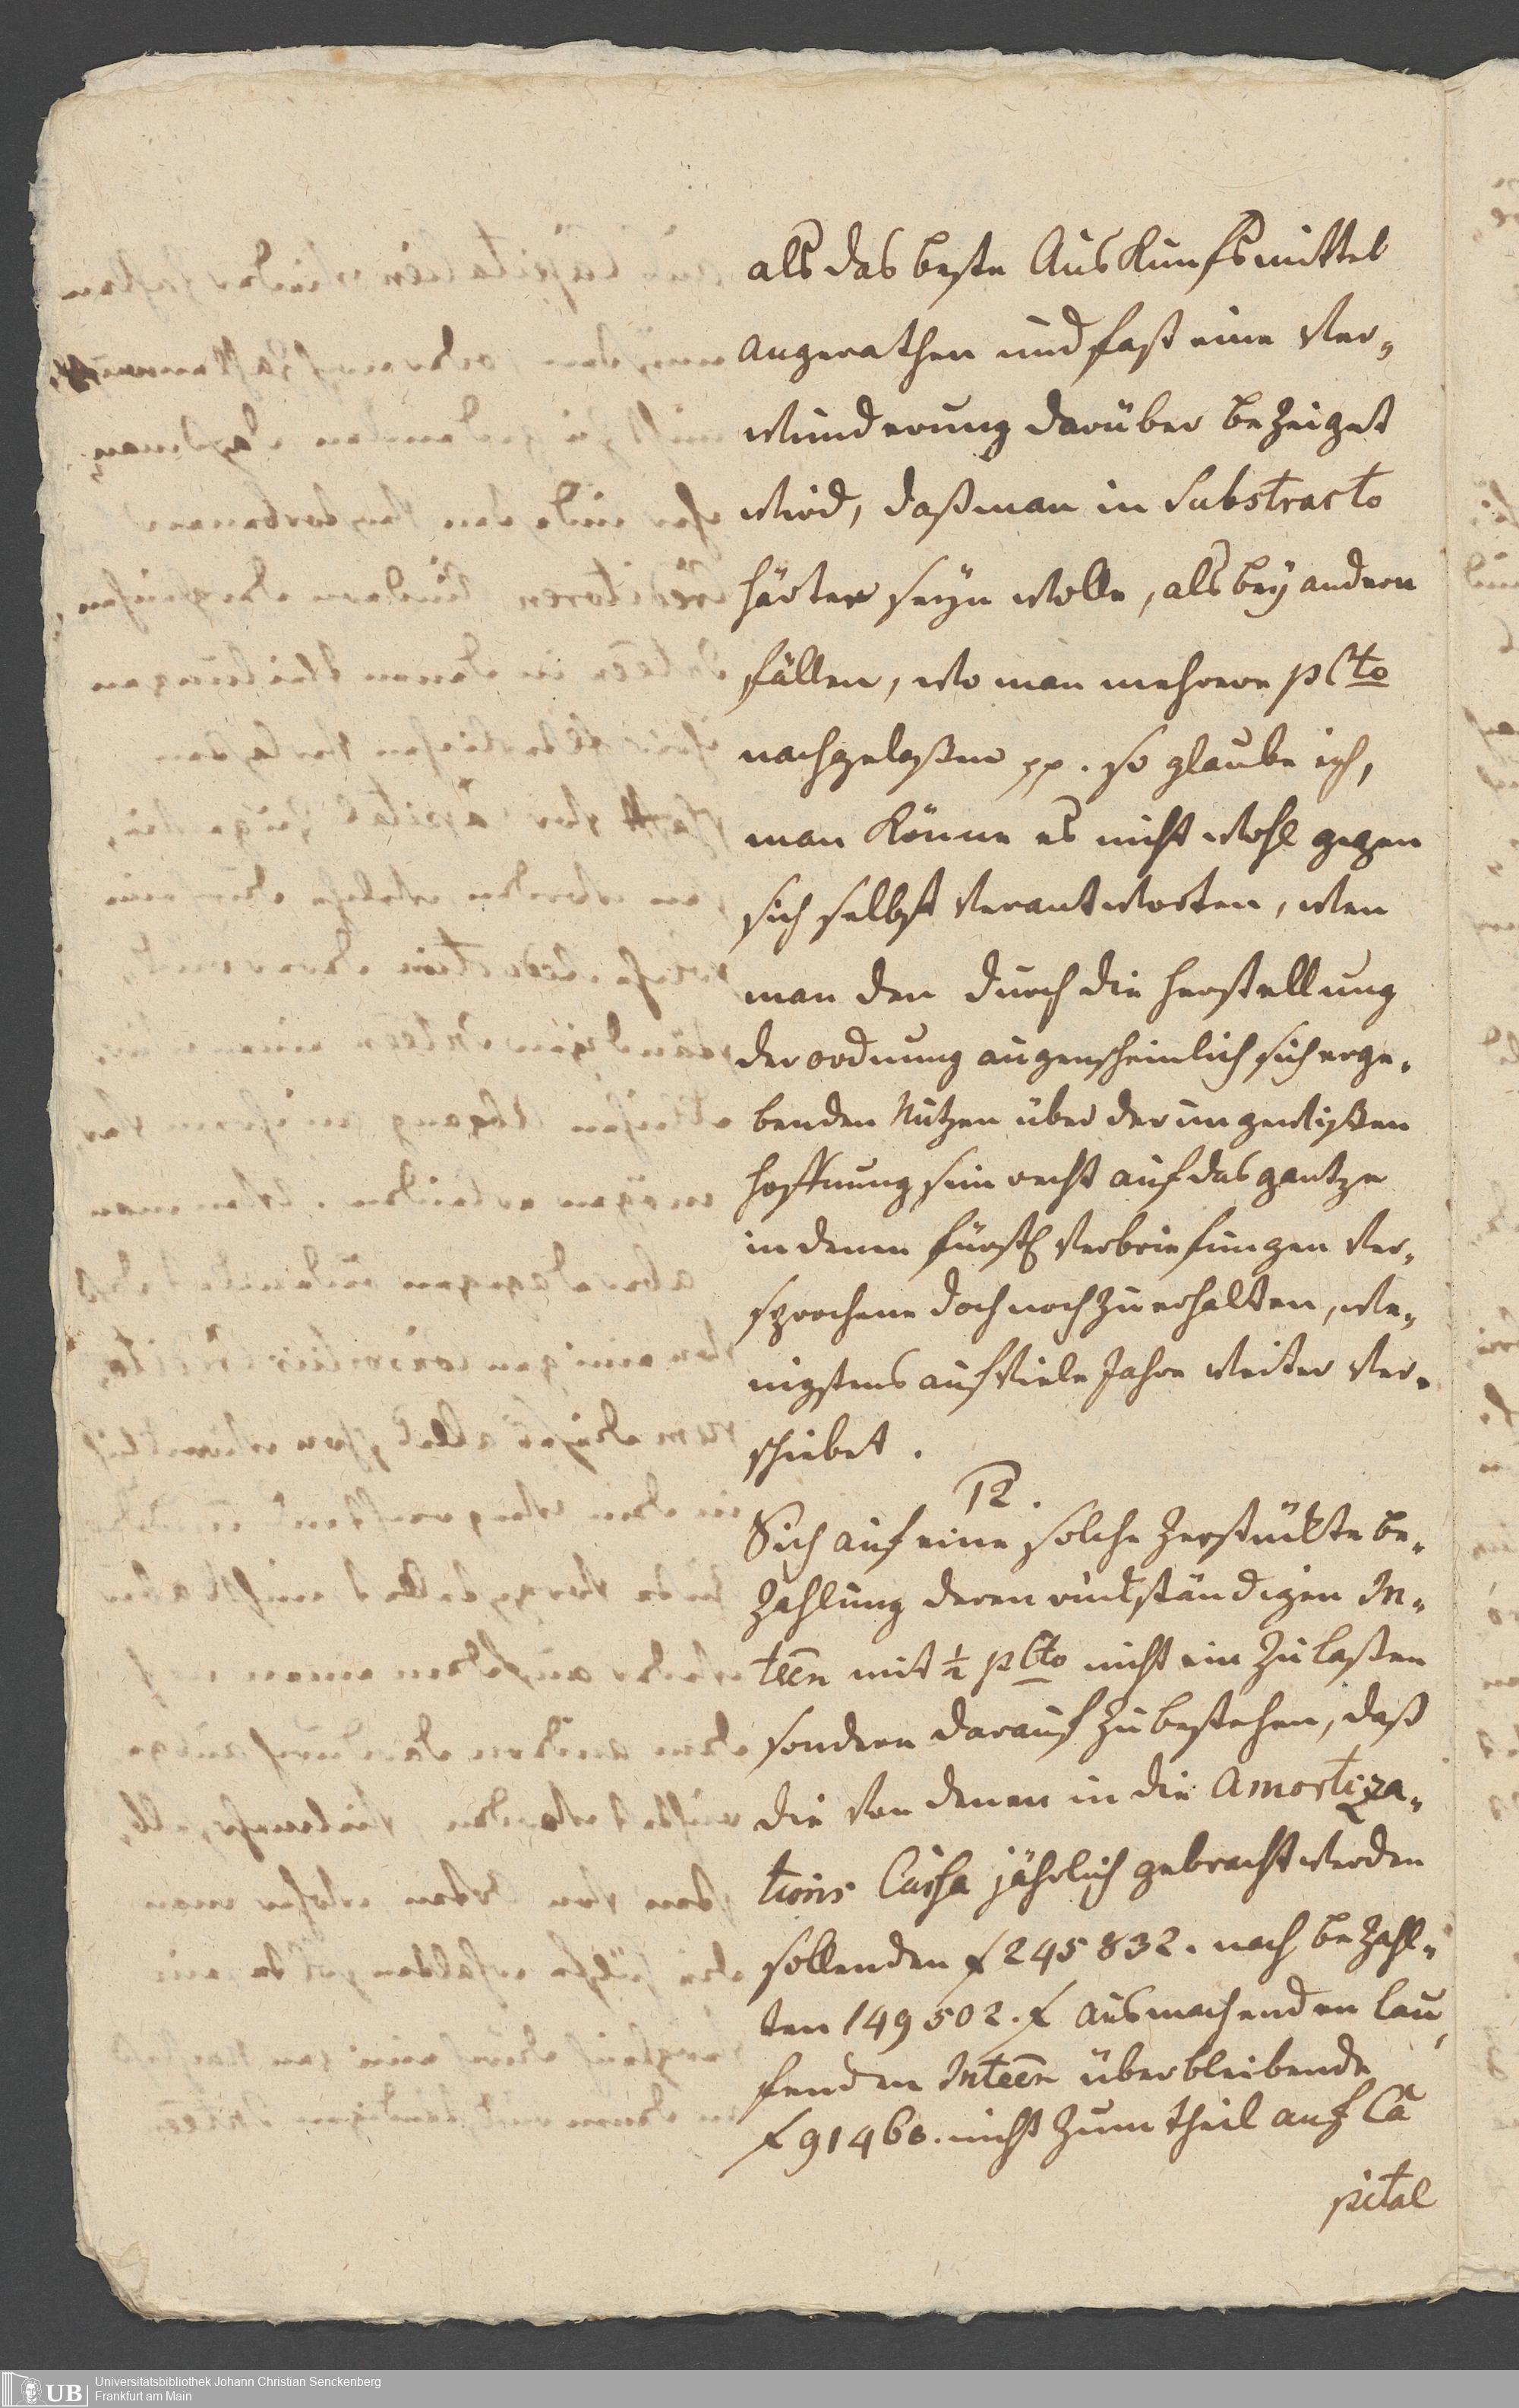 als das beste Auskunfsmittel
angerathen und fast eine Ver„
wunderung darüber bezeiget
wird, daß man in Substracto
härter seyn wolle, als bey andern
fällen, wo man mehrere pCto
nachgelaßen pp. so glaube ich,
man könne es nicht wohl gegen
sich selbst verantworten, wen
man den durch die herstellung
der ordnung augenscheinlich sich erge„
benden Nutzen über der ungewißen
hoffnung sein recht auf das gantze
in denen fürstl Verbriefungen Ver„
sprochene doch noch zu erhalten, we„
nigstens auf viele Jahre weiter Ver„
schiebet.
12.
Sich auf eine solche zerstückte be„
zahlung deren rückständigen In„
teen mit ½ pCto nicht ein zu laßen
sondern darauf zu bestehen, daß
die von denen in die Amortiza„
tions Cassa jährlich gebracht werden
sollenden f 245832. nach bezahl„
ten 149502. f ausmachenden lau„
fenden Inteen überbleibende
f 91460. nicht zum theil auf Ca
pital
UB
Universitätsbibliothek Johann Christian Senckenberg
Frankfurt am Main